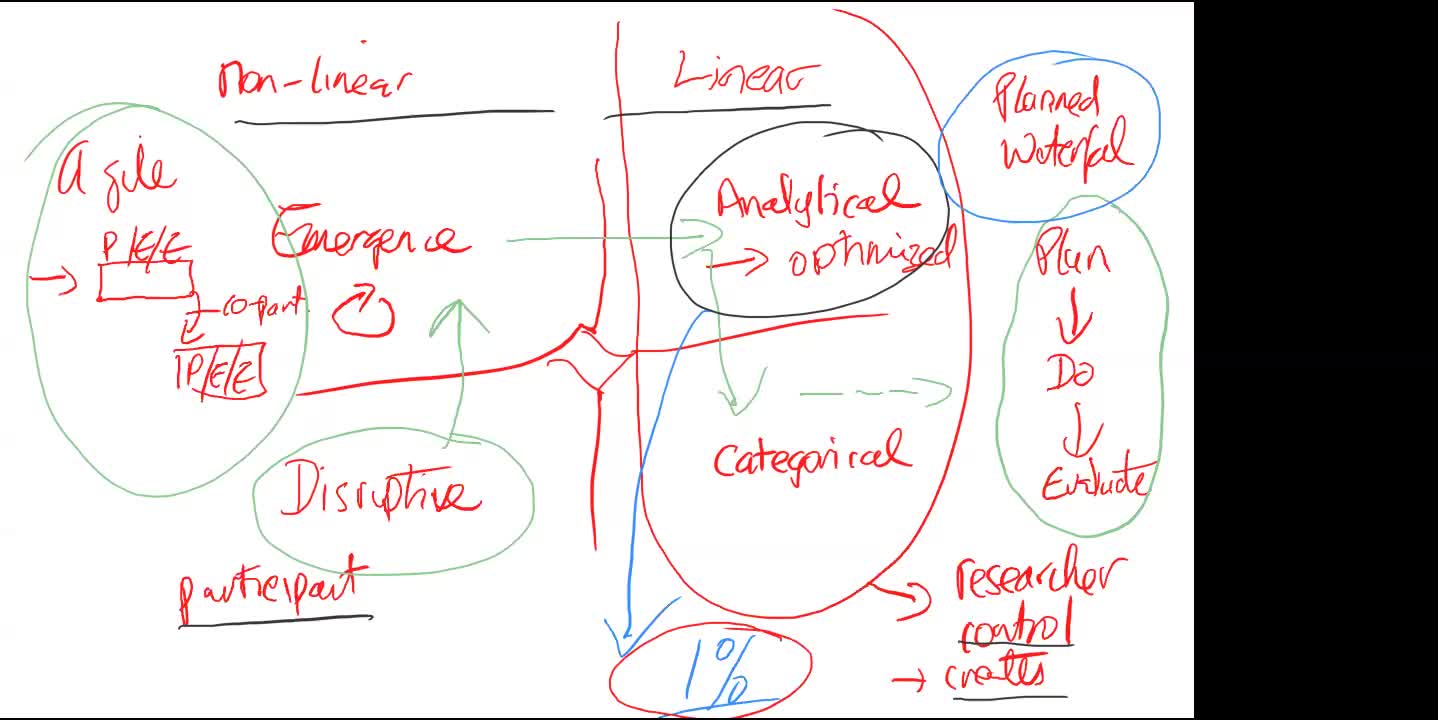 non-linear
Linear
Planned
Waterfal
Agile
P/E/E
co-part
P/E/E
Emergence
Analytical
→ optimized
Plan
↓
Do
↓
Evaluate
Disruptive
Categorical
participant
researcher
control
→ creates
1%